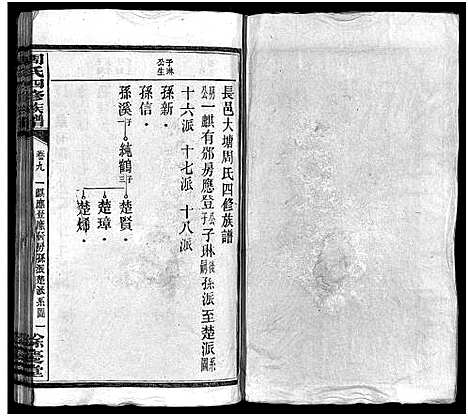 長邑大塘周氏四修族譜
房公一麒有邠房應登公子子琳後嗣孫派至楚派系圖
十六派 十七派 十八派
子琳公生
孫新·
孫信·
孫溪子一純鶴子三楚賢·
楚璋·
楚烯·
周氏四修族譜
卷九
一麒應登應 房孫派楚派系圖
一
餘慶堂